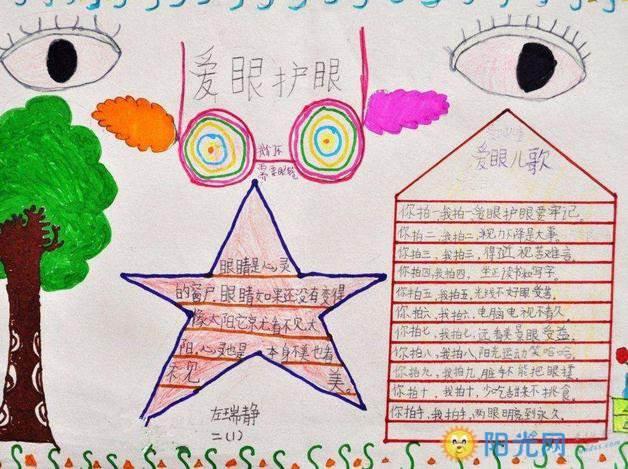 爱眼护眼
需要眼镜
爱眼儿歌
你拍一,我拍一,爱眼护眼要牢记。
你拍二,我拍二,视力下降是大事。
你拍三,我拍三,得近视苦难言。
你拍四,我拍四,坐正读书和写字。
你拍五,我拍五,光线不好眼受害。
你拍六,我拍六,电脑电视不看久。
你拍七,我拍七,远看美景眼受益。
你拍八,我拍八,阳光运动笑哈哈。
你拍九,我拍九,脏手不能把眼揉。
你拍十,我拍十,少吃甜来不挑食。
你拍手,我拍手,两眼明亮到永久。
眼睛是心灵
的窗户,眼睛如果还没有变得
像太阳它就看不见太
阳,心灵也是 本身不美也看
不见 美。
左瑞静
二(1)
阳光网